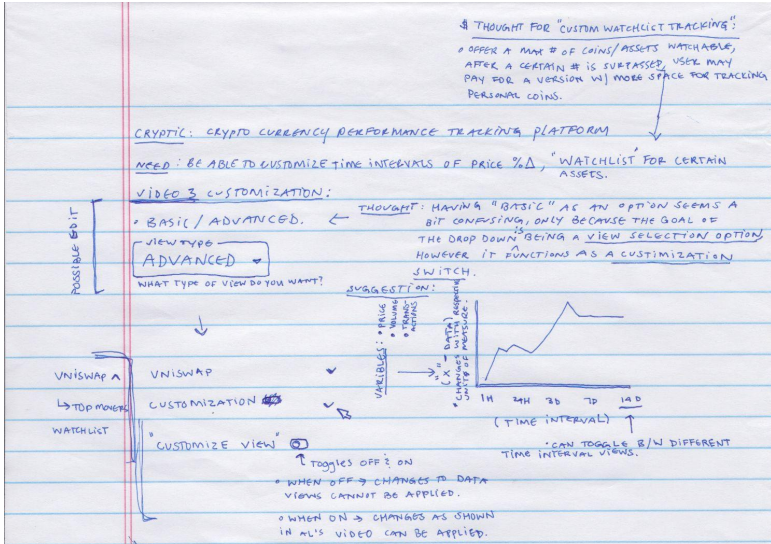 $ THOUGHT FOR "CUSTOM WATCHLIST TRACKING":
• OFFER A MAX # OF COINS/ASSETS WATCHABLE,
AFTER A CERTAIN # IS SURPASSED, USER MAY
PAY FOR A VERSION W/ MORE SPACE FOR TRACKING
PERSONAL COINS.
CRYPTIC: CRYPTO CURRENCY PERFORMANCE TRACKING PLATFORM
NEED: BE ABLE TO CUSTOMIZE TIME INTERVALS OF PRICE %Δ, "WATCHLIST" FOR CERTAIN
ASSETS.
VIDEO 3 CUSTOMIZATION:
POSSIBLE EDIT
• BASIC/ADVANCED. ←
VIEW TYPE
ADVANCED
WHAT TYPE OF VIEW DO YOU WANT?
THOUGHT: HAVING "BASIC" AS AN OPTION SEEMS A
BIT CONFUSING, ONLY BECAUSE THE GOAL OF
THE DROP DOWN IS BEING A VIEW SELECTION OPTION
HOWEVER IT FUNCTIONS AS A CUSTIMIZATION
SWITCH.
SUGGESTION:
VARIABLES:
• PRICE
• VOLUME
• TRANS-
ACTIONS
" "
(X-DATA)
• CHANGES WITH RESPECTIVE
UNITS OF MEASURE.
1H 24H 3D 7D 14D
(TIME INTERVAL)
• CAN TOGGLE B/W DIFFERENT
TIME INTERVAL VIEWS.
UNISWAP ^
↳ TOP MOVERS
WATCHLIST
UNISWAP
CUSTOMIZATION
"CUSTOMIZE VIEW"
TOGGLES OFF & ON
• WHEN OFF → CHANGES TO DATA
VIEWS CANNOT BE APPLIED.
• WHEN ON → CHANGES AS SHOWN
IN AL'S VIDEO CAN BE APPLIED.